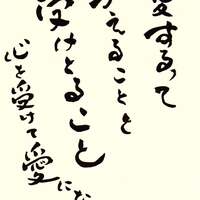 愛するって
えることと
受けとること
心を受けて愛にな